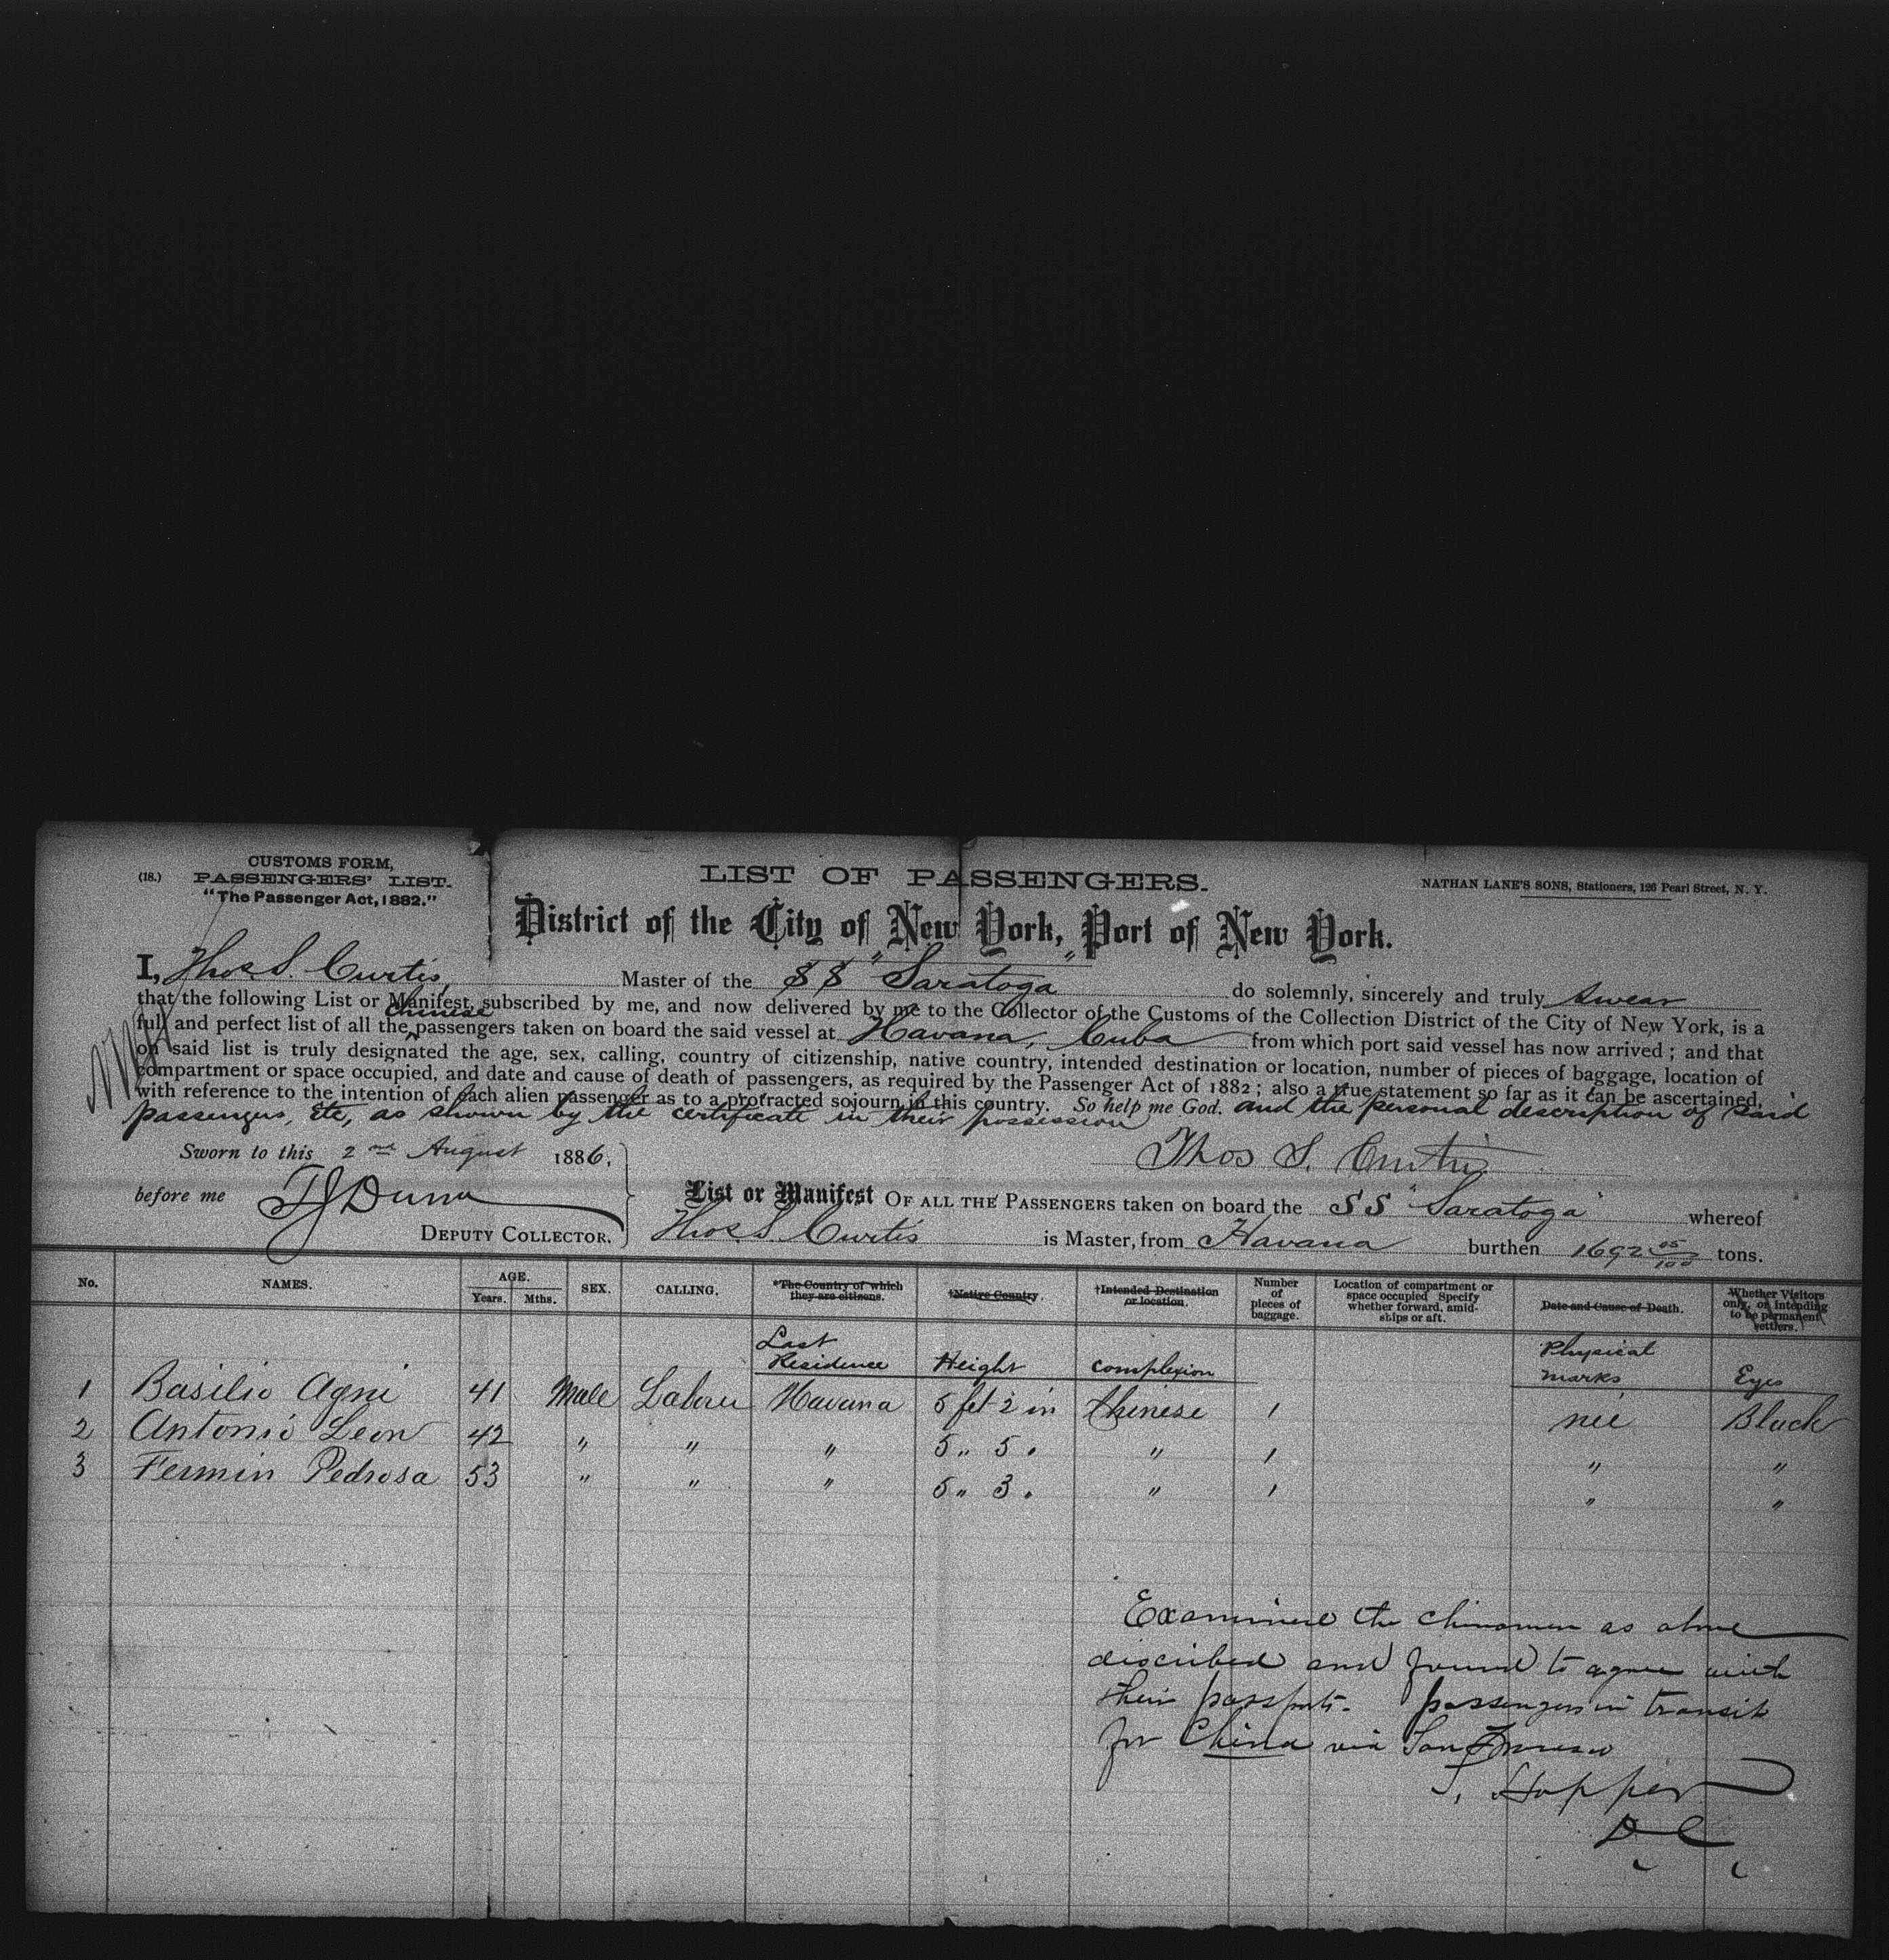 CUSTOMS FORM,
(18.) PASSENGERS' LIST.
"The Passenger Act, 1882."
LIST OF PASSENGERS.
NATHAN LANE'S SONS, Stationers, 126 Pearl Street, N. Y.
District of the City of New York, Port of New York.
I, Thos S. Curtis, Master of the SS "Saratoga" do solemnly, sincerely and truly swear
that the following List or Manifest, subscribed by me, and now delivered by me to the Collector of the Customs of the Collection District of the City of New York, is a
full and perfect list of all the Chinese passengers taken on board the said vessel at Havana, Cuba from which port said vessel has now arrived; and that
on said list is truly designated the age, sex, calling, country of citizenship, native country, intended destination or location, number of pieces of baggage, location of
compartment or space occupied, and date and cause of death of passengers, as required by the Passenger Act of 1882; also a true statement so far as it can be ascertained,
with reference to the intention of each alien passenger as to a protracted sojourn in this country. So help me God. and the personal description of said
passengers, etc, as shown by the certificate in their possession
Sworn to this 2nd August 1886,
Thos S. Curtis
before me TJ Dunn
DEPUTY COLLECTOR.
List or Manifest OF ALL THE PASSENGERS taken on board the SS "Saratoga" whereof
Thos S. Curtis is Master, from Havana burthen 1692 05/100 tons.
No. NAMES. AGE. Years. Mths. SEX. CALLING. *The Country of which they are citizens. †Native Country. †Intended Destination or location. Number of pieces of baggage. Location of compartment or space occupied Specify whether forward, amidships or aft. Date and Cause of Death. Whether Visitors only, or intending to be permanent settlers.
Last Residence Height complexion Physical marks Eyes
1 Basilio Agni 41 Male Laborer Havana 5 fet 2 in Chinese 1 Black
2 Antonio Leon 42 " " " 5 " 5 " " 1 " "
3 Fermin Pedrosa 53 " " " 5 " 3 " " 1 " "
Examined the chinamen as above
discribed and found to agree with
their passports. passengers in transit
for China via San Francisco
J. Hopper
D C